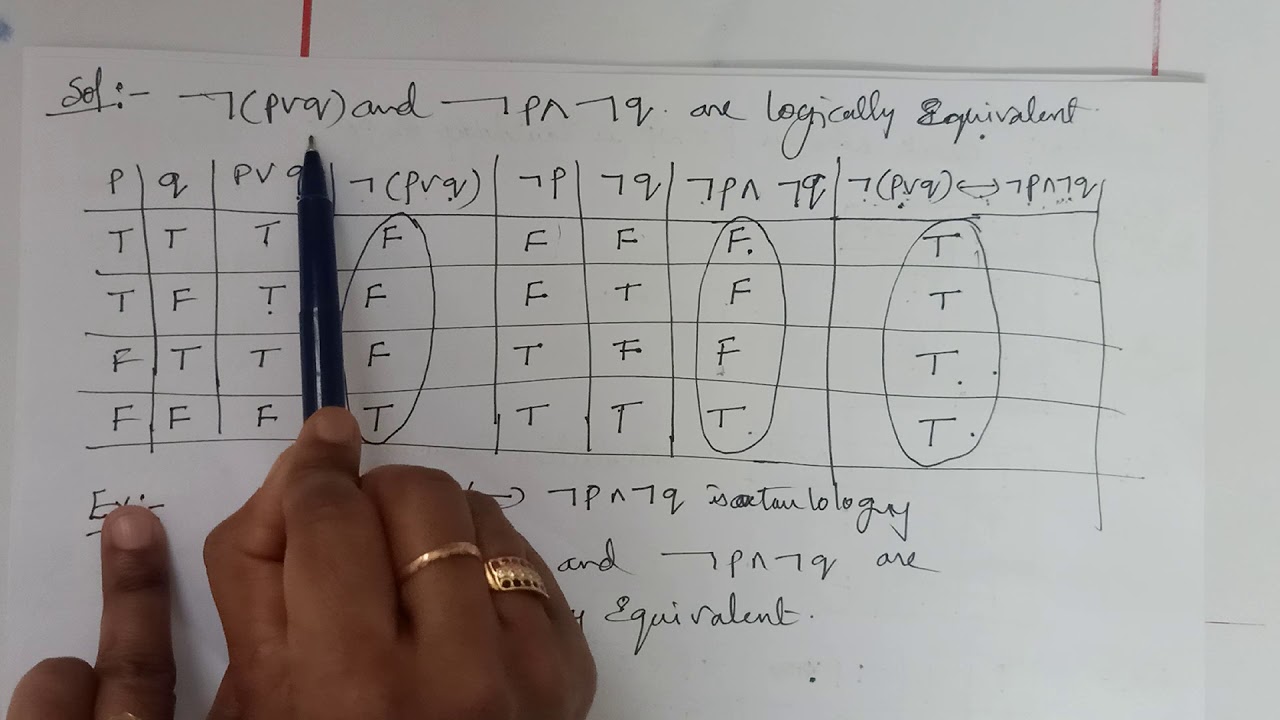 Sol:- ¬(p∨q) and ¬p∧¬q. are logically Equivalent.
p q p∨q ¬(p∨q) ¬p ¬q ¬p∧ ¬q ¬(p∨q)↔¬p∧¬q
T T T F F F F. T
T F T F F T F T
F T T F T F F T.
F F F T T T T. T.
Ex:- ↔ ¬p∧¬q is a tautology
and ¬p∧¬q are
Equivalent.